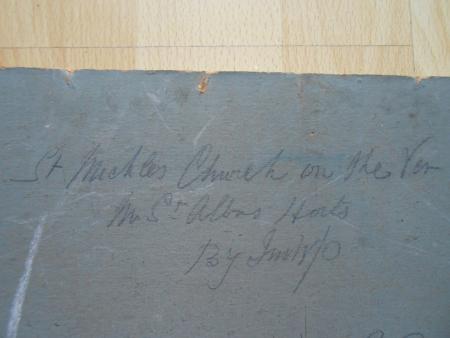 St Michles Church on the Ver
Nr St Albns Herts
By